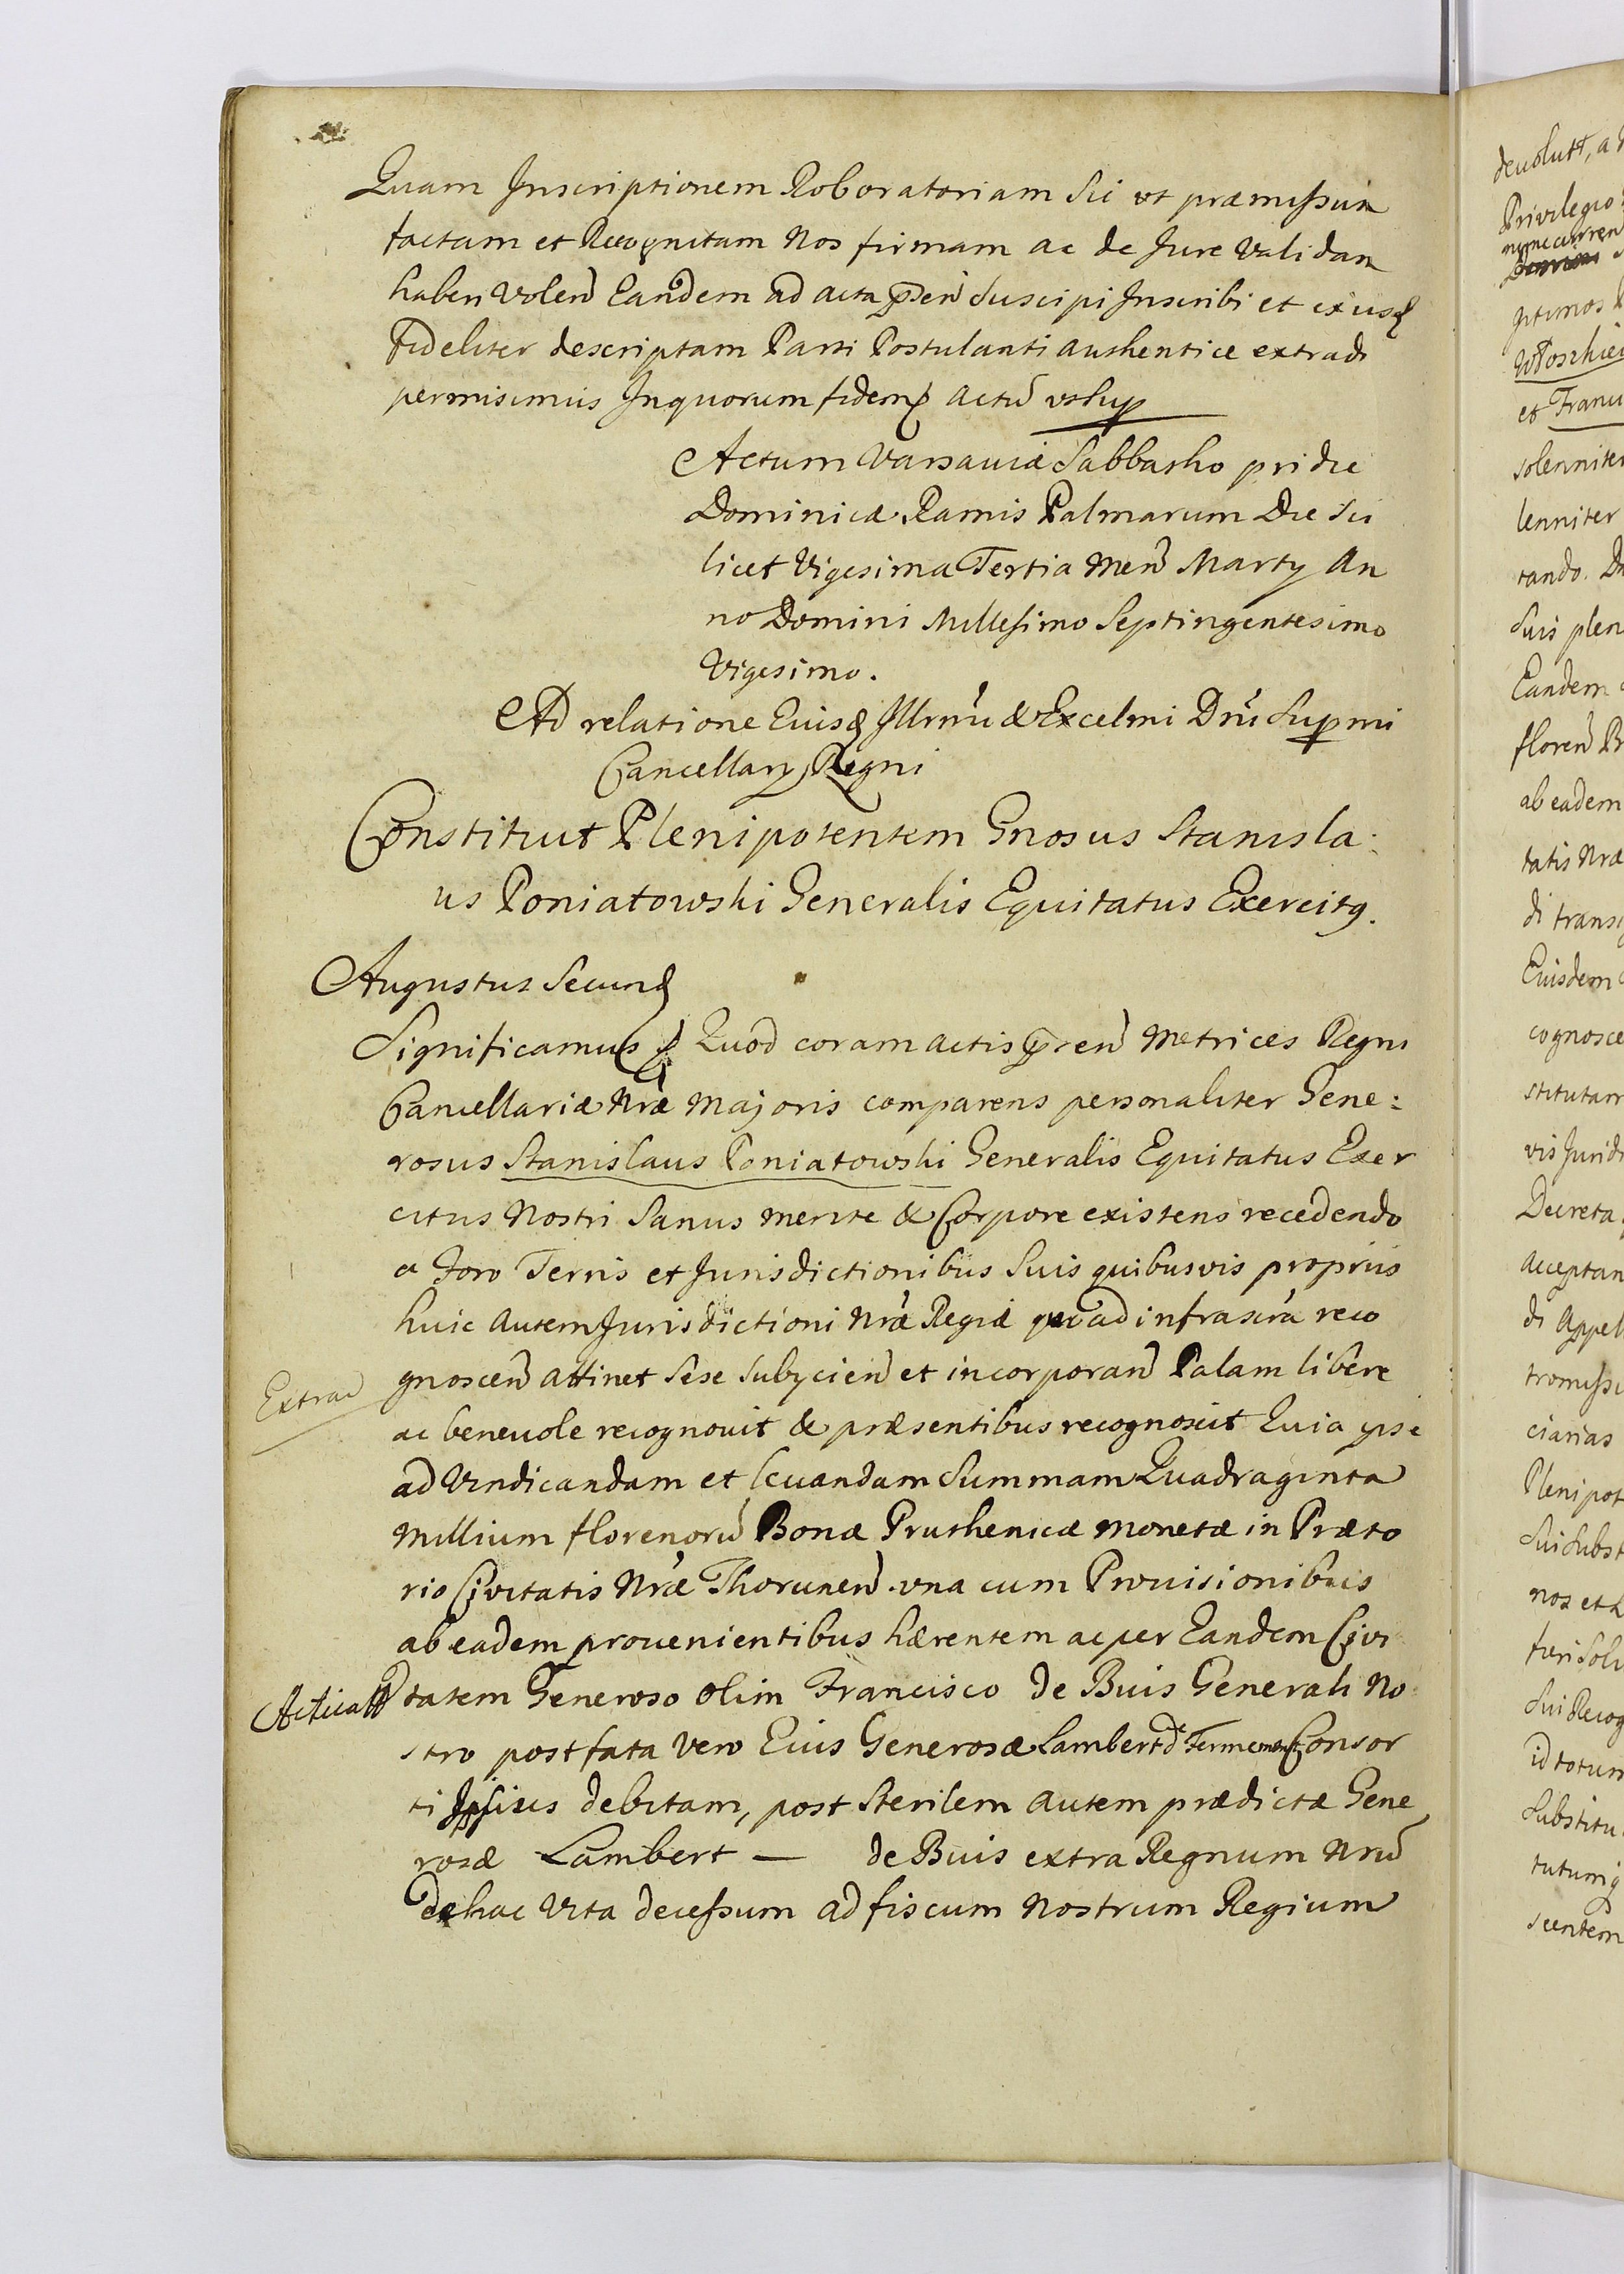 Quam Inscriptionem Roboratoriam Sic ut præmissum
factam et Recognitam Nos firmam ac de Jure Validam
haberi Volen̄ Eandem ad acta p̄sen̄ Suscipi Inscribi et ex ijsd
Fideliter descriptam Parti Postulanti authentice extradi
permisimus Inquorum fidem Actū vt sup
Actum Varsaviæ Sabbatho pridie
Dominicæ Ramis Palmarum Die Sci
licet Vigesima Tertia Men̄ Martij An
no Domini Millesimo Septingentesimo
Vigesimo.
Ad relatione Eiusd Illrm̄i & Excelmi Dn̄i Supmi
Cancellarij Regni
Constituit Plenipotentem Gnosus Stanisla:
us Poniatowski Generalis Equitatus Exercitq.
Augustus Secund
Significamus Quod coram actis p̄sen̄ Metrices Regni
Cancellariæ Nræ Majoris comparens personaliter Gene:
rosus Stanislaus Poniatowski Generalis Equitatus Exer
citus Nostri Sanus mente & Corpore existens recedendo
a Foro Terris et Jurisdictionibus Suis quibusvis proprijs
huic autem Jurisdictioni Nræ Regiæ quoad infrascra reco
gnoscen̄ attinet Sese Subijcien̄ et incorporan̄ Palam libere
Extrad
ac benevole recognovit & præsentibus recognoscit Quia ipse
ad Vindicandam et levandam Summam Quadraginta
Millium florenorū Bonæ Pruthenicæ monetæ in Præto
rio Civitatis Nræ Thorunen̄ una cum Provisionibus
ab eadem provenientibus hærentem ac per Eandem Civi
Acticatt
tatem Generoso olim Francisco de Buis Generali No
stro post fata vero Eius Generosæ Lambert d Consor
ti Ipsius debitam, post Sterilem autem prædictæ Gene
rosæ Lambert — de Buis extra Regnum Nrū
de hac Vita decessum ad fiscum Nostrum Regium
devolutt, a
Privilegio
Włoszkie
et Franci
solenniter
lenniter
tando. D
Suis plen
Eandem
floren̄ Pr
ab eadem
tatis Nræ
di transi
Eiusdem
cognosce
stitutam
vis Juridi
Decreta
acceptan
di Appel
tromissi
ciarias
Plenipot
Sui Subst
nos et
fieri Solv
Sui Recog
id totum
Substitu
tutum
scentem